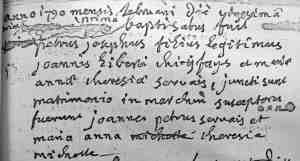 anno 1730 mensis Februarii Die vigesima
prima baptisatus fuit
petrus josephus filius legitimus
joannis liberti et mariæ
annæ theresiæ servais, juncti sunt
matrimonio in marchin susceptores
fuerunt joannes petrus servais et
maria anna michotte theresia
michotte